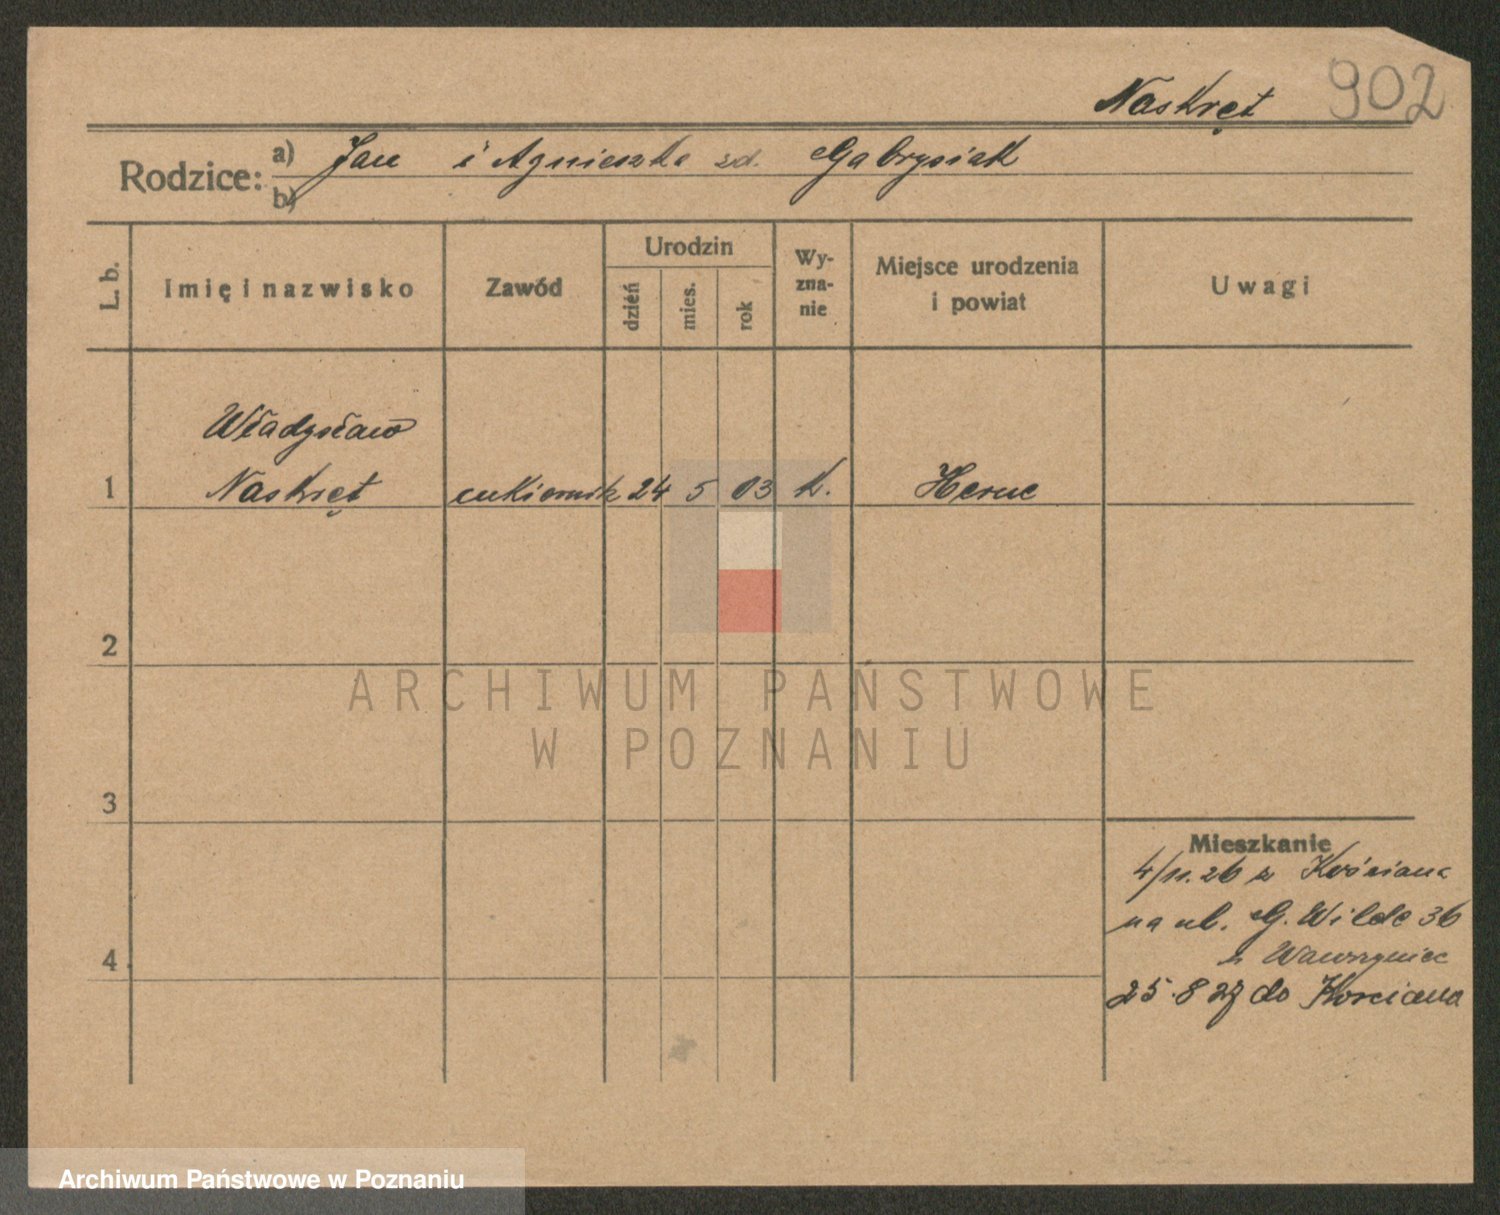 Naskręt 902
Rodzice: a) Jan i Agnieszka zd. Gabrysiak
b)
L. b. Imię i nazwisko Zawód Urodzin Wy-zna-nie Miejsce urodzenia i powiat Uwagi
dzień mies. rok
Władysław
1 Naskręt cukiernik 24 5 03 k. Herne
2
ARCHIWUM PAŃSTWOWE
W POZNANIU
3
Mieszkanie
4/11.26 z Kościana
na ul. G. Wilde 36
4. Wawrzyniec
25.8 27 do Kościana
Archiwum Państwowe w Poznaniu